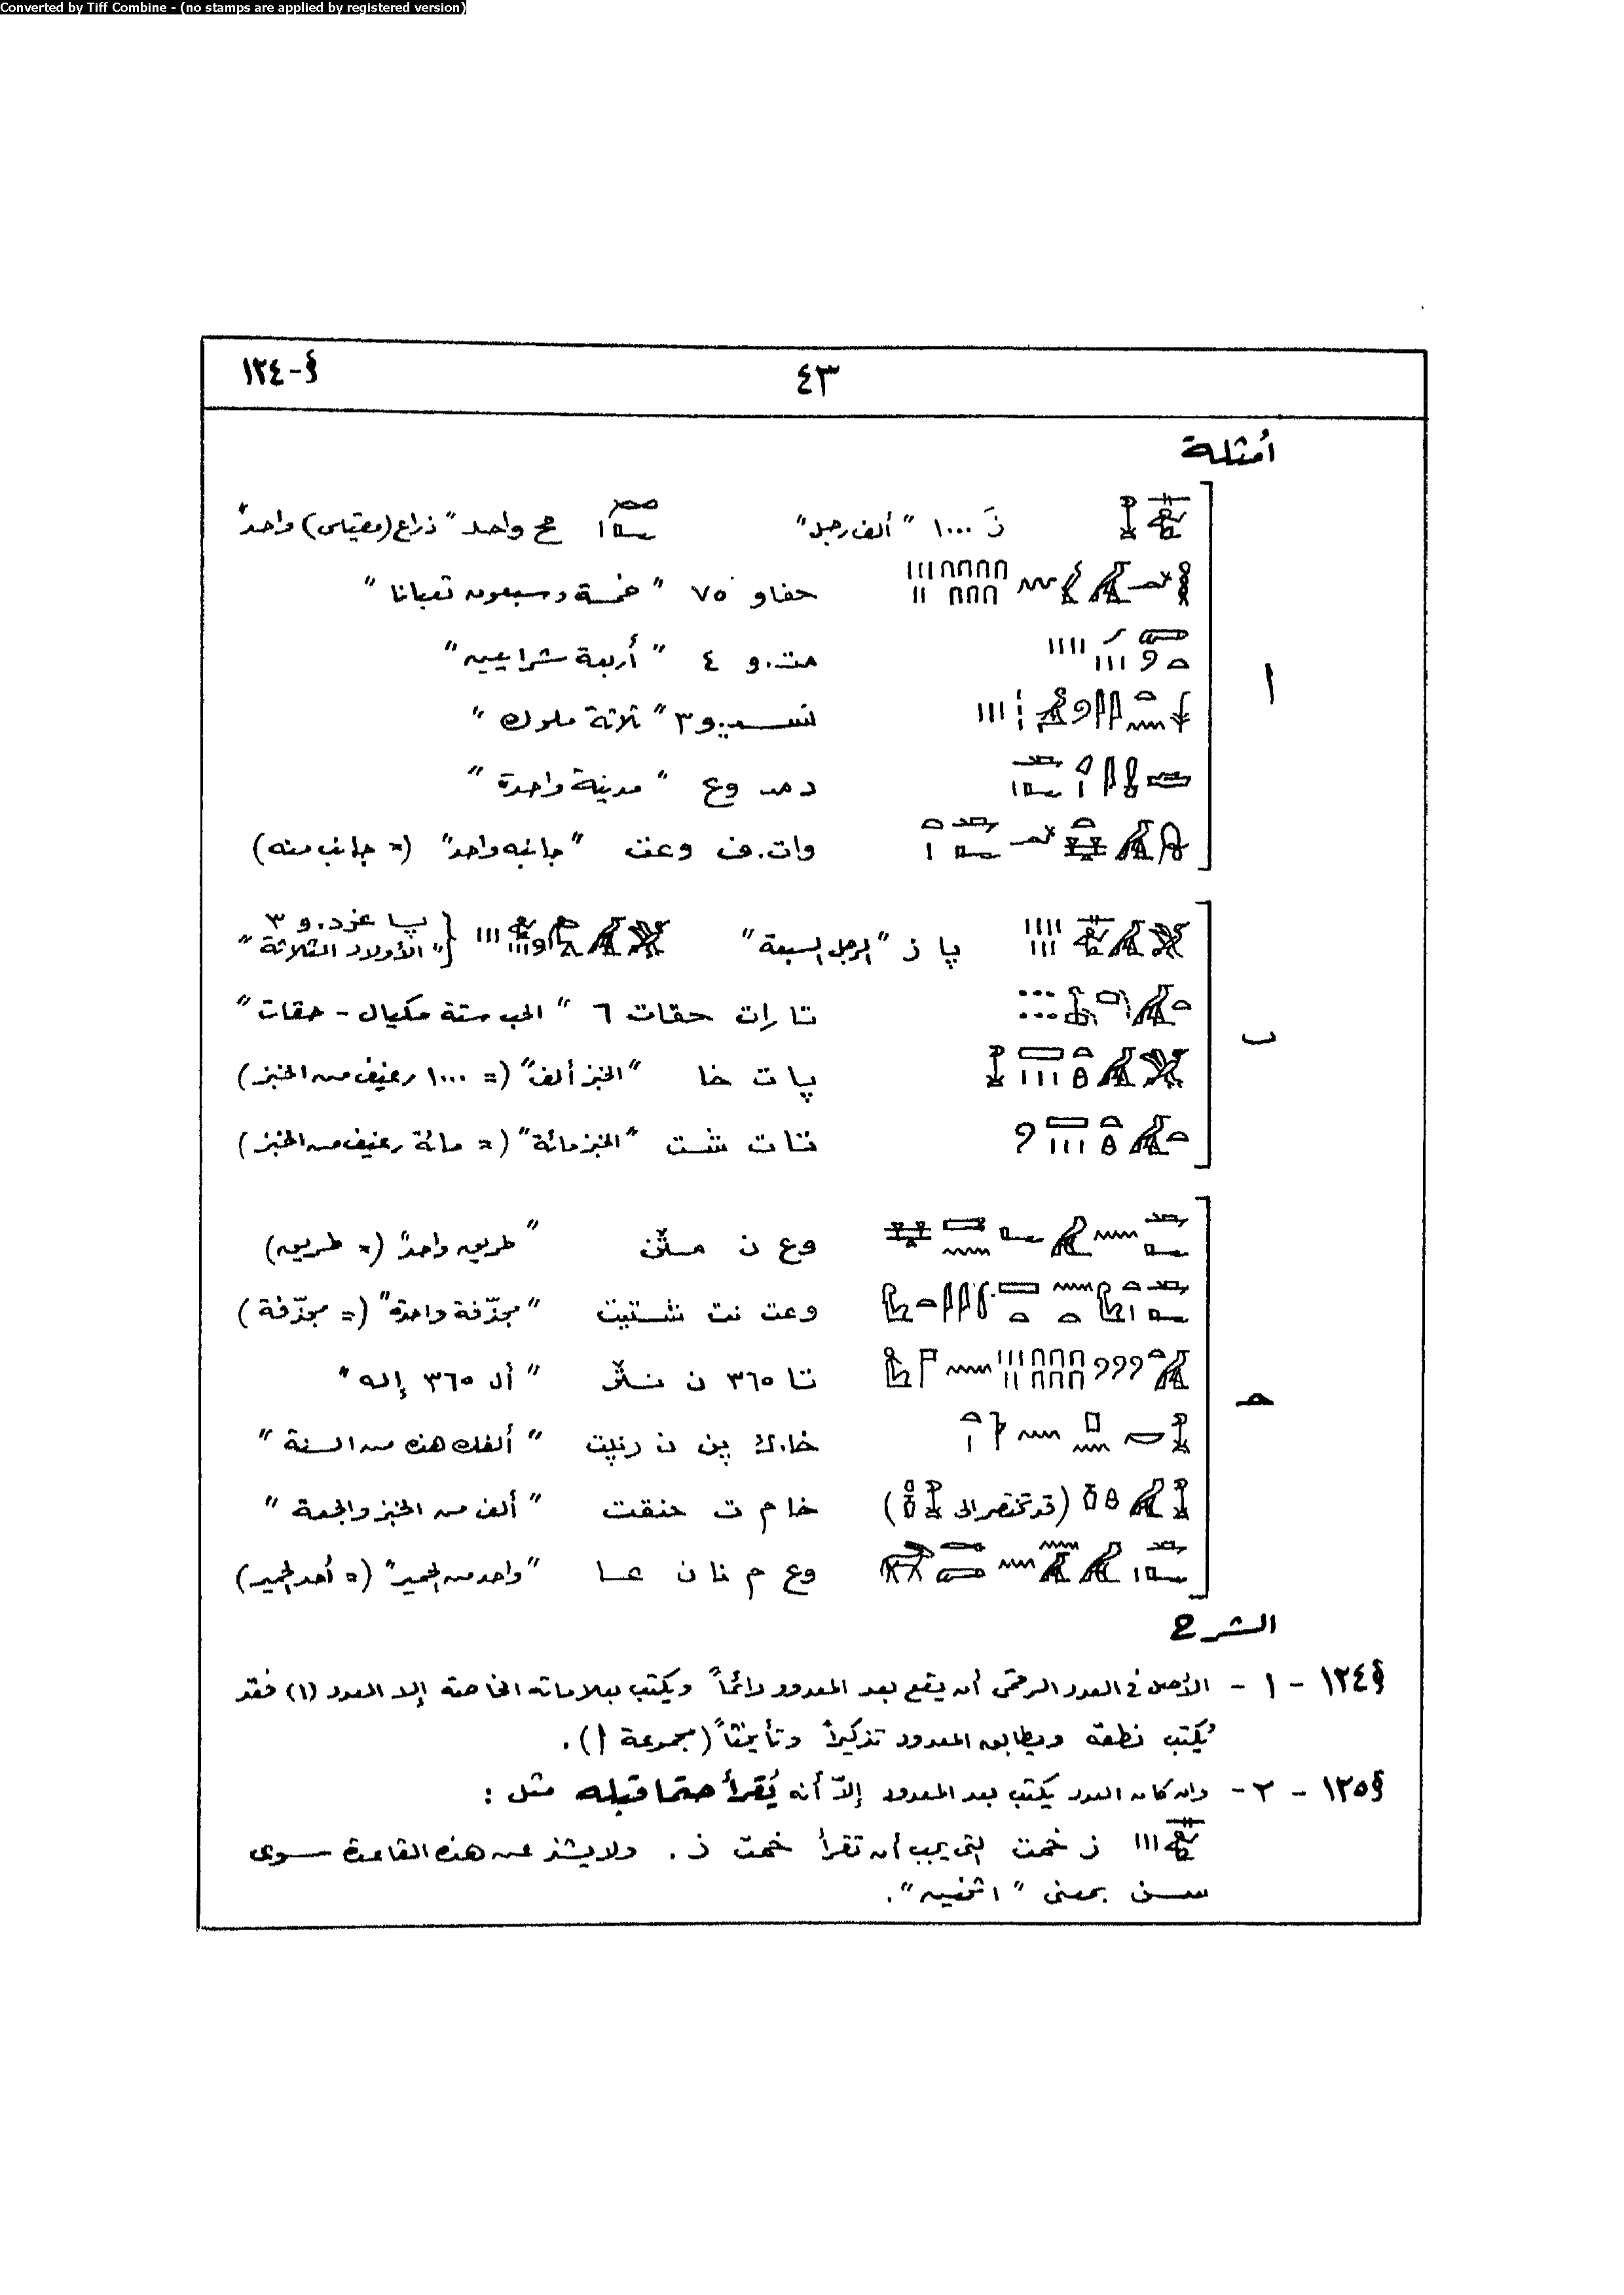 Converted by Tiff Combine - (no stamps are applied by registered version)
§-١٢٤
٤٣
أمثلة
ا
زَ ١٠٠٠ "ألف رجل" مح واحد "ذراع (مقياس) واحد"
حفاو ٧٥ "خمسة وسبعون ثعبانا"
مت.و ٤ "أربعة شرايين"
"ثلاثة ملوك"
دمى وع "مدينة واحدة"
وات.ف وعت "جانبه واحد" (= جانب منه)
ب
پا ز "الرجل السبعة" پا غرد.و ٣
"الأولاد الثلاثة"
تا رات حقات ٦ "الحب ستة مكيال - حقات"
پا ت خا "الخبز ألف" (= ١٠٠٠ رغيف من الخبز)
تا ت شت "الخبز مائة" (= مائة رغيف من الخبز)
حـ
وع ن مثن "طريق واحد" (= طريق)
وعت نت شتيت "مجدّفة واحدة" (= مجدّفة)
تا ٣٦٠ ن نثر "أل ٣٦٠ إله"
خا.ك پن ن رنپت "ألفك هذه من السنة"
خا م ت حنقت "ألف من الخبز والجعة" (قد تختصر الى )
وع م نا ن عا "واحد من الحمير" (= أحد الحمير)
الشرح
§١٢٤ - ١ - الأصل في العدد الرقمى أن يقع بعد المعدود دائماً ويكتب بعلاماته الخاصة إلا العدد (١) فقد
يُكتب نطقه ويطابق المعدود تذكيراً وتأنيثاً (مجموعة ا).
§١٢٥ - ٢ - وان كان العدد يكتب بعد المعدود إلاّ أنه يُقرأ حتما قبله مثل :
ز خمت التى يجب أن تقرأ خمت ز . ولا يشذ عن هذه القاعدة سوى
سن بمعنى "اثنين".